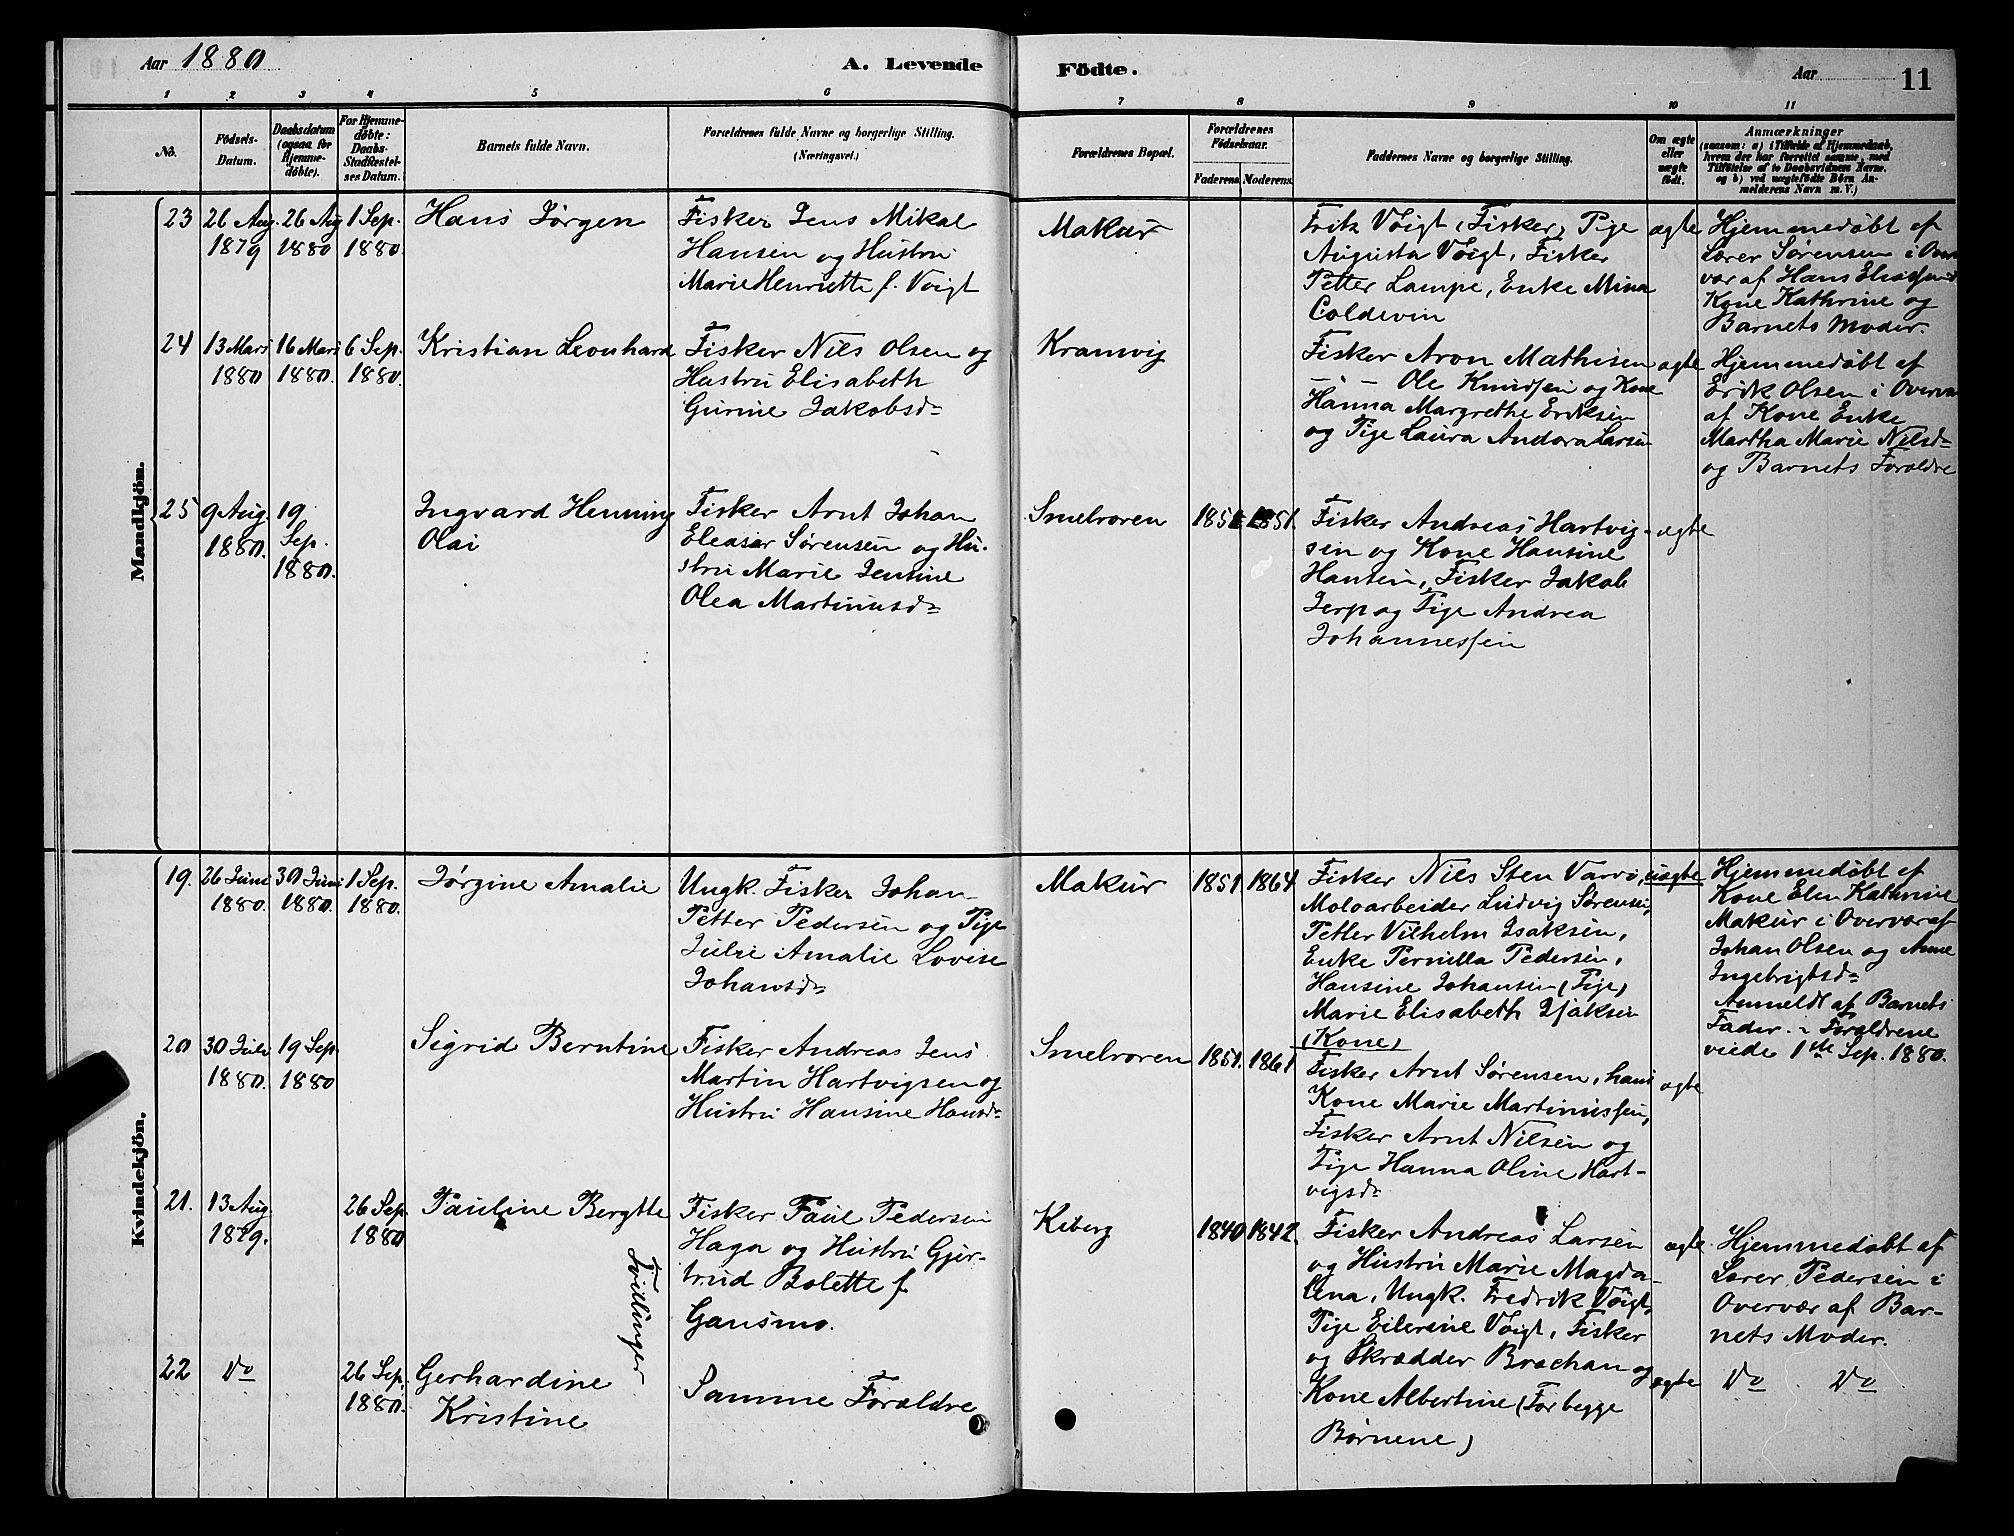 Aar 1880
A. Levende
Födte.
Aar
11
1 2 3 4 5 6 7 8 9 10 11
No.
Födsels-
Datum.
Daabsdatum
(ogsaa for
Hjemme-
døbte).
For Hjemme-
døbte:
Daabs-
Stadfæstel-
ses Datum.
Barnets fulde Navn.
Forældrenes fulde Navne og borgerlige Stilling.
(Næringsvei.)
Forældrenes Bopæl.
Forældrenes
Födselsaar.
Faderens. Moderens.
Faddernes Navne og borgerlige Stilling.
Om ægte
eller
uægte
født.
Anmærkninger
(saasom: a) i Tilfælde af Hjemmedaab,
hvem der har forrettet samme, med
Tilføielse af to Daabsvidners Navne,
og b) ved uægtefödte Børn An-
melderens Navn m. V.)
Mandkjön.
23
26 Aug
1879
26 Aug
1880
1 Sep.
1880.
Hans Jørgen
Fisker Jens Mikal
Hansen og Hustru
Marie Henriette f. Voigt
Makur
Fritz Voigt (Fisker) Pige
Augusta Voigt, Fisker
Petter Lampe, Enke Mina
Coldevin
ægte
Hjemmedøbt af
Lærer Sørensen i Over
vær af Hans
Kone Kathrine og
Barnets Moder.
24
13 Mars
1880
16 Mars
1880.
6 Sep.
1880.
Kristian Leonhard
Fisker Nils Olsen og
Hustru Elisabeth
Gurine Jakobsd=
Kramvig
Fisker Aron Mathisen
— " — Ole Knudsen og Kone
Hanna Margrethe Eriksen
og Pige Laura Andora Larsen
ægte
Hjemmedøbt af
Erik Olsen i Overvær
af Kone Enke
Martha Marie Nilsd=
og Barnets Forældre
25
9 Aug.
1880.
19
Sep.
1880.
Ingvard Henning
Olai
Fisker Arnt Johan
Eleasar Sørensen og Hu-
stru Marie Jensine
Olea Martinusd=
Smelvoren
1851 1851.
Fisker Andreas Hartvig-
sen og Kone Hansine
Hansen, Fisker Jakob
Jerp og Pige Andrea
Johannessen
ægte
Kvindekjön.
19.
26 Juni
1880.
30 Juni
1880.
1 Sep.
1880.
Jørgine Amalie
Ungk. Fisker Johan
Petter Pedersen og Pige
Julie Amalie Lovise
Johansd=
Makur
1851. 1864
Fisker Nils Sten Varvi,
Moloarbeider Ludvig Sørensen,
Petter Vilhelm Isaksen,
Enke Pernilla Pedersen,
Hansine Johansen (Pige)
Marie Elisabeth Isaksen
(Kone)
uægte
Hjemmedøbt af
Kone Elen Kathrine
Makur i Overvær af
Johan Olsen og Anne
Ingebrigtsd=
Anmeldt af Barnets
Fader. ~ Forældrene
viede 1ste Sep. 1880.
20
30 Juli
1880.
19 Sep.
1880
Sigrid Berntine
Fisker Andreas Jens
Martin Hartvigsen og
Hustru Hansine Hansd=
Smelvoren
1851. 1861
Fisker Arnt Sørensen, hans
Kone Marie Martinussen,
Fisker Arnt Nilsen og
Pige Hanna Oline Hart-
vigsd=
ægte
21.
13 Aug
1879.
26 Sep.
1880
Pauline Bergitte
Fisker Paul Pedersen
Haga og Hustru Gjer-
trud Bolette f.
Gansmo.
Tvillinger
Kiberg
1840 1842.
Fisker Andreas Larsen
og Hustru Marie Magda-
lena, Ungk. Fredrik Voigt,
Pige Eilerine Voigt, Fisker
og Skrædder Brochan og
Kone Albertine (For begge
Børnene)
ægte
Hjemmedøbt af
Lærer Pedersen i
Overvær af Bar-
nets Moder.
22
Do
26 Sep.
1880.
Gerhardine
Kristine
Samme Forældre
ægte
Do Do